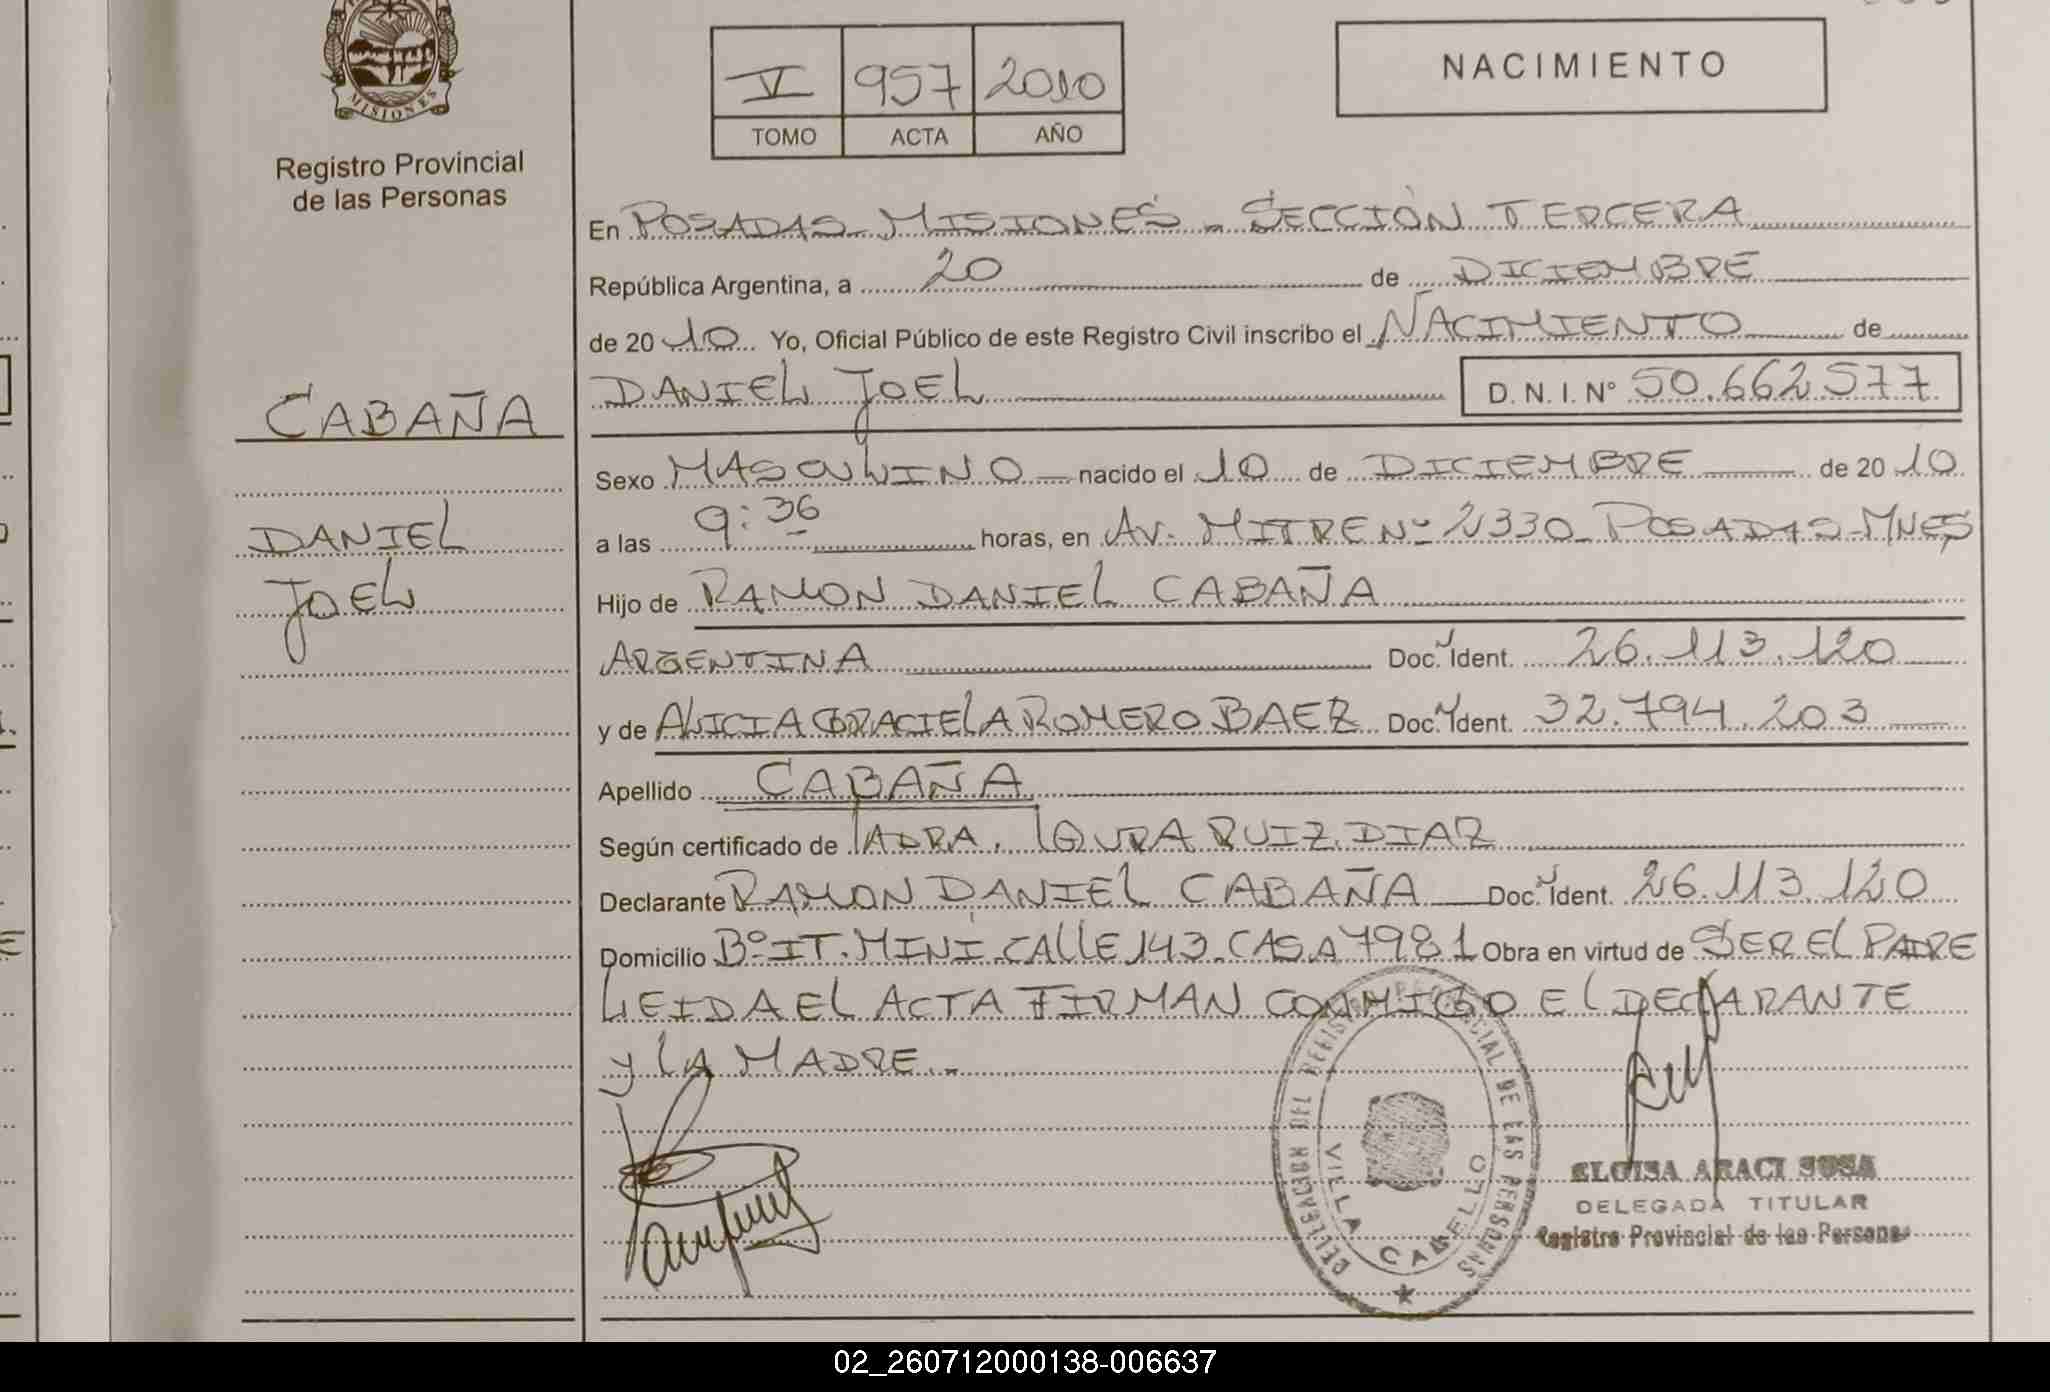 MISIONES
Registro Provincial
de las Personas
CABAÑA
DANIEL
JOEL
V 957 2010
TOMO ACTA AÑO
NACIMIENTO
En POSADAS-MISIONES - SECCIÓN TERCERA
República Argentina, a 20 de DICIEMBRE
de 2010 Yo, Oficial Público de este Registro Civil inscribo el NACIMIENTO de
DANIEL JOEL D. N. I. Nº 50.662.577
Sexo MASCULINO nacido el 10 de DICIEMBRE de 2010
a las 9:36 horas, en AV. MITRE Nº 2330- POSADAS-MNES
Hijo de RAMON DANIEL CABAÑA
ARGENTINA Doc. Ident. 26.113.120
y de ALICIA GRACIELA ROMERO BAEZ Doc. Ident. 32.794.203
Apellido CABAÑA
Según certificado de LAURA RUIZ DIAZ
Declarante RAMON DANIEL CABAÑA Doc. Ident. 26.113.120
Domicilio Bº IT. MINI. CALLE 143. CASA 7981 Obra en virtud de SER EL PADRE
LEIDA EL ACTA FIRMAN CONMIGO EL DECLARANTE
Y LA MADRE.-
DELEGACION DEL REGISTRO PROVINCIAL DE LAS PERSONAS
CABELLO
ELOISA ARACI SOSA
DELEGADA TITULAR
Registro Provincial de las Personas
02_260712000138-006637